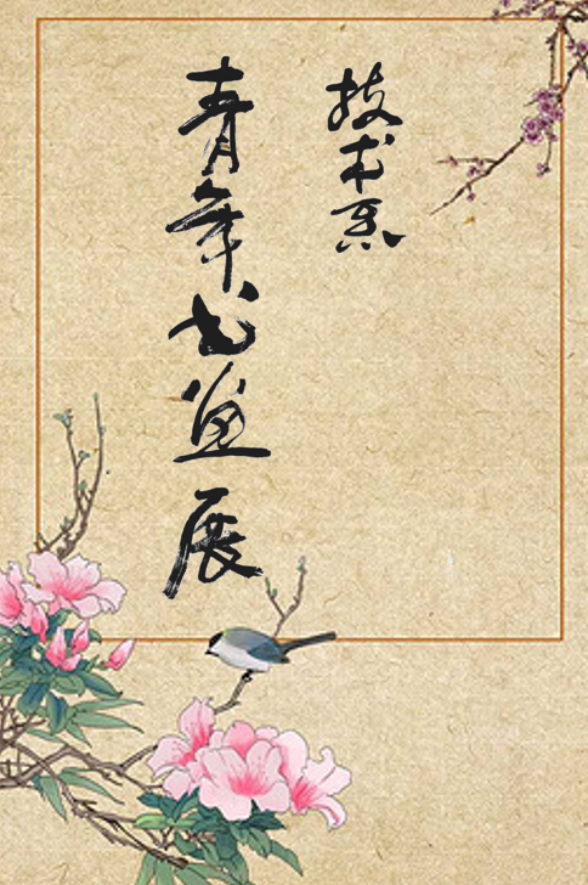 技术系
青年书画展